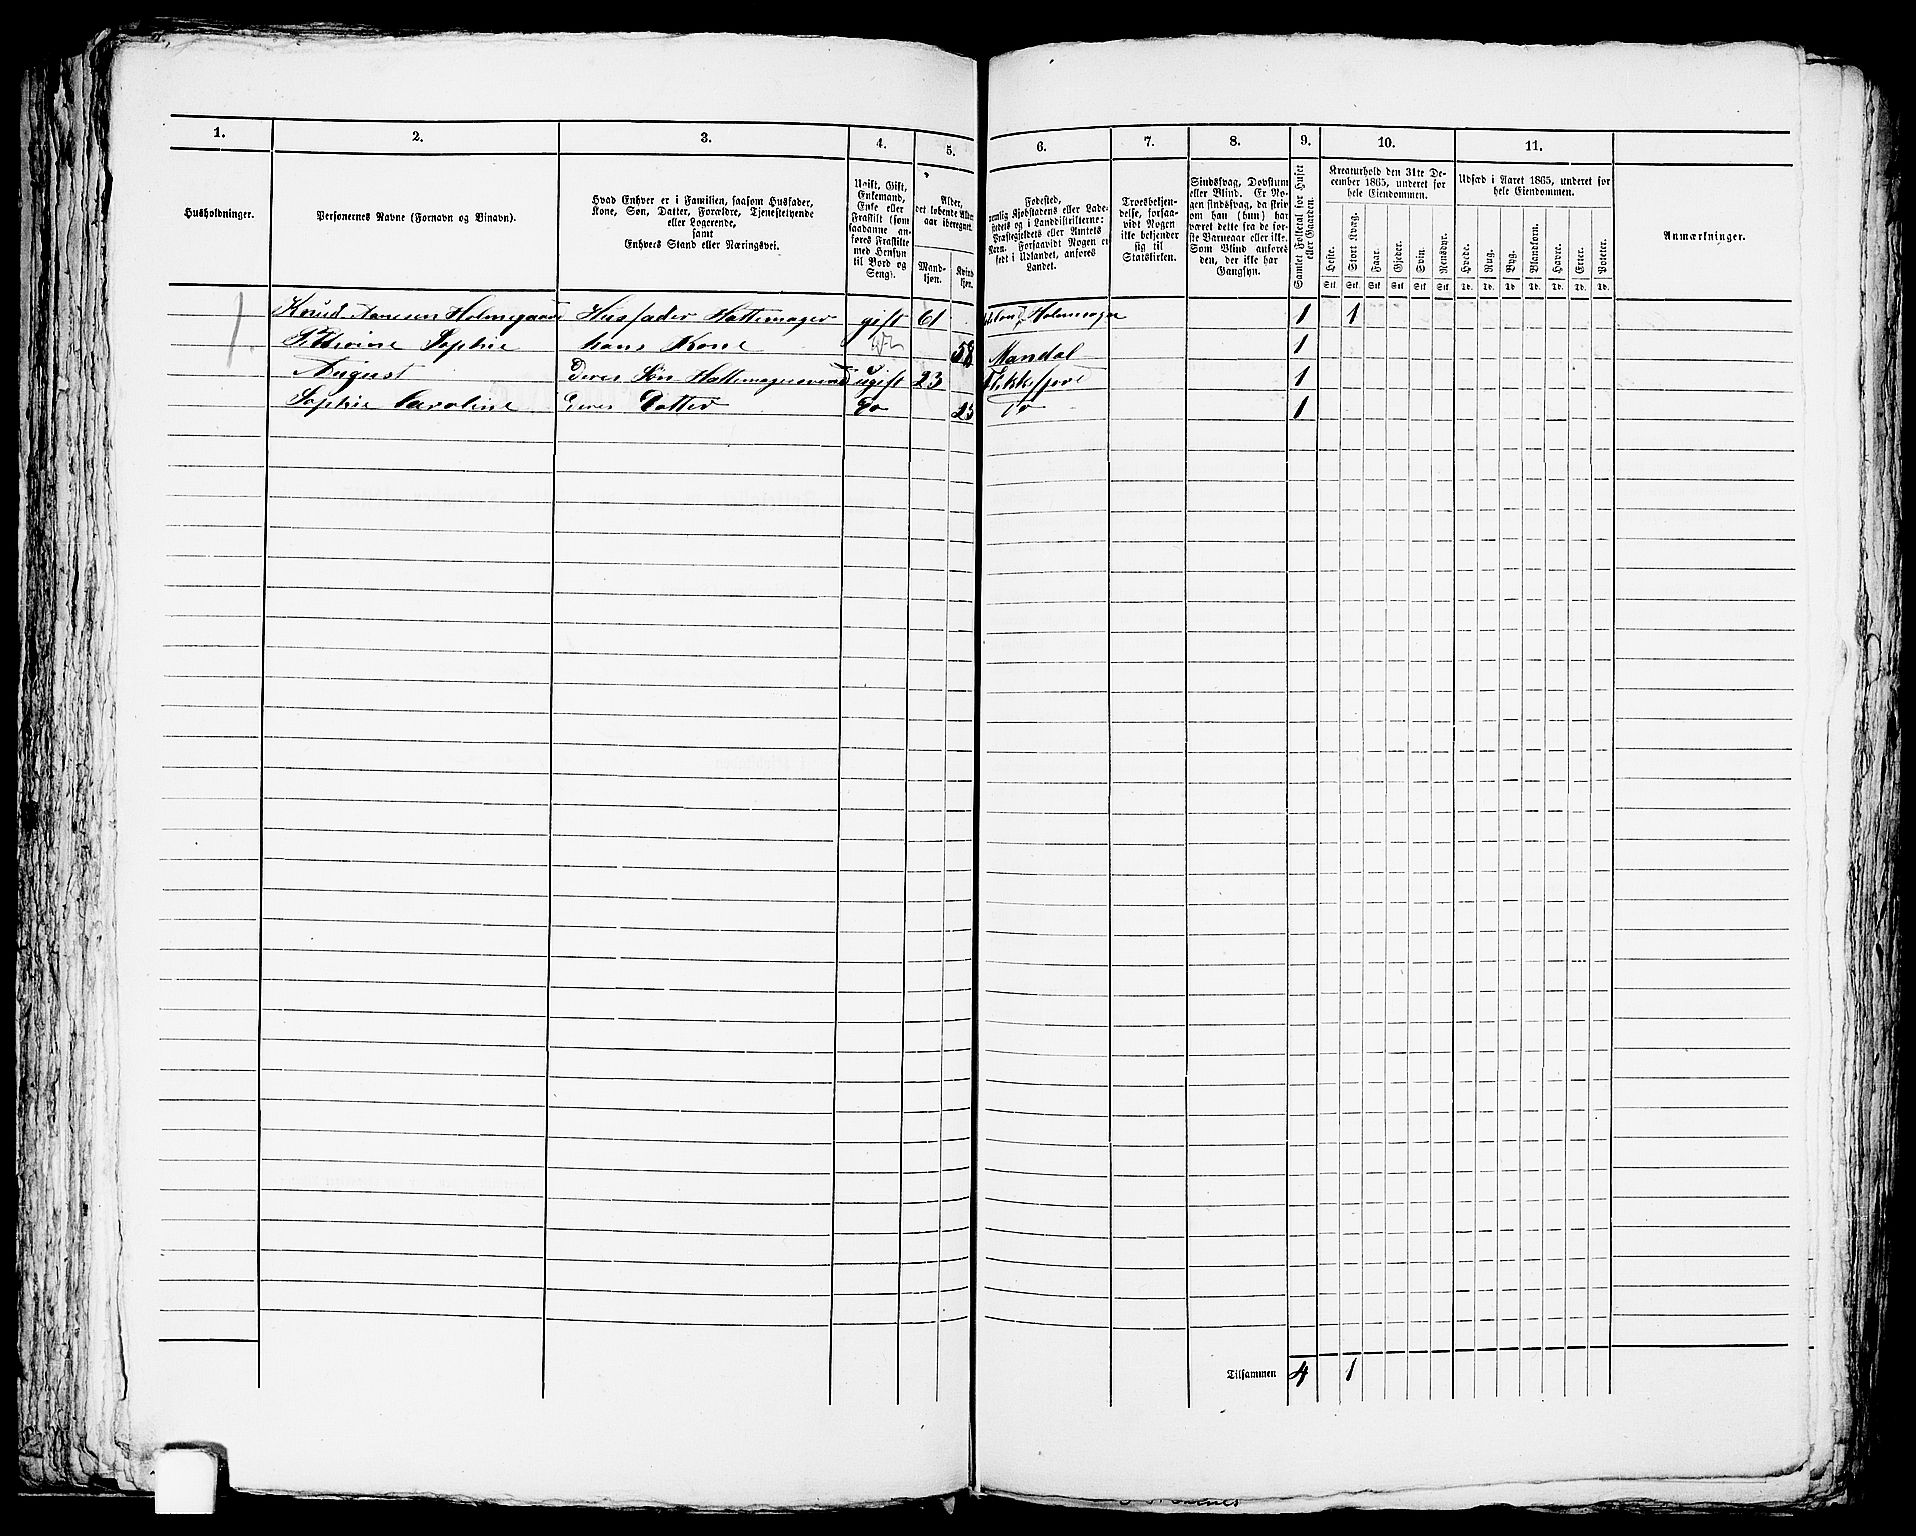 1. 2. 3. 4. 5. 6. 7. 8. 9. 10. 11.
Husholdninger.
Personernes Navne (Fornavn og Tilnavn).
Hvad Enhver er i Familien, saasom Husfader,
Kone, Søn, Datter, Forældre, Tjenestetyende
eller Logerende,
samt
Enhvers Stand eller Næringsvei.
Ugift, Gift,
Enkemand,
Enke eller
Fraskilt (som
saadanne an-
føres Fraskilte
med Hensyn
til Bord og
Seng).
Alder,
det løbende Alders-
aar iberegnet.
Mand-
kjøn.
Kvind
kjøn.
Fødested,
nemlig Kjøbstadens eller Lade-
stedets og i Landdistrikterne:
Præstegjeldets eller Amtets
Navn. Forsaavidt Nogen er
født i Udlandet, anføres
Landet.
Troesbekjen-
delse, forsaa-
vidt Nogen
ikke bekjender
sig til
Statskirken.
Sindssvag, Døvstum
eller Blind. Er No-
gen sindssvag, da skriv
om han (hun) har
været dette fra de før-
ste Barneaar eller ikke.
Som Blind anføres
den, der ikke har
Gangsyn.
Samlet Folketal for Huset
eller Gaarden.
Kreaturhold den 31te De-
cember 1865, underet for
hele Eiendommen.
Heste. Stort Kvæg. Faar. Gjeder. Svin. Rensdyr.
Stk. Stk. Stk Stk Stk Stk
Udsæd i Aaret 1865, underet for
hele Eiendommen.
Hvede. Rug. Byg. Blandkorn. Havre. Erter. Poteter.
Td. Td. Td Td Td. Td. Td.
Anmærkninger.
1. Knud Aanesen Holmegaard Husfader Hattemager gift 61 1 1
Sophie hans Kone 58 Mandal 1
August Deres Søn ugift 23 Flekkefjord 1
Sophie Caroline Deres Datter Do 23 Do 1
Tilsammen 4 1